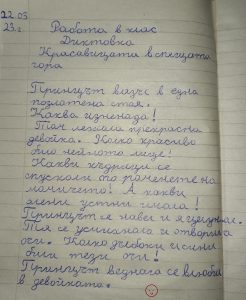 22.03
23г.
Работа в клас
Диктовка
Красавицата в спещата
гора
Принцът влезе в една
позлатена стая.
Каква изненада!
Там лежала прекрасна
девойка. Колко красиво
било нейното лице!
Какви къдрици се
спускали по раменете на
момичето! А какви
алени устни имала!
Принцът се навел и я целунал.
Тя се усмихнала и отворила
очи. Колко дълбоки и сини
били тези очи!
Принцът веднага се влюбил
в девойката.